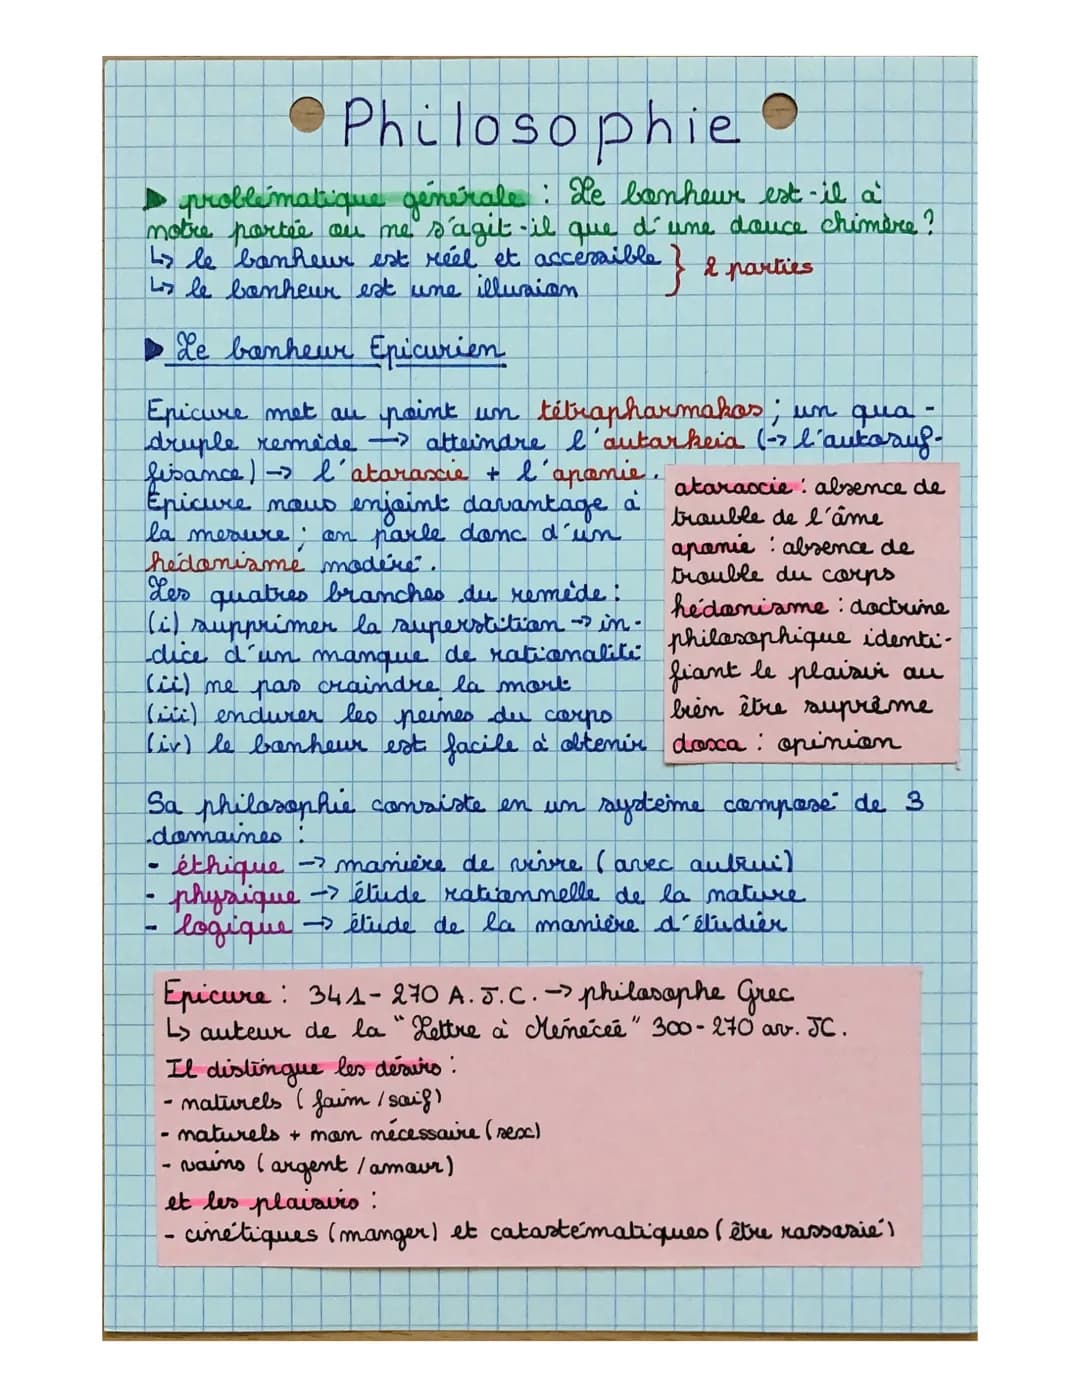 Philosophie
▶ problématique générale : Le bonheur est-il à
notre portée ou ne s'agit-il que d'une douce chimère ?
↳ le bonheur est réel et accessible } 2 parties
↳ le bonheur est une illusion
▶ Le bonheur Epicurien
Epicure met au point un tétrapharmakos ; un qua-
druple remède → atteindre l'autarkeia (→ l'autosuf-
fisance) → l'ataraxie + l'aponie.
Epicure nous enjoint davantage à
la mesure ; on parle donc d'un
hédonisme modéré.
Les quatres branches du remède :
(i) supprimer la superstition → in-
dice d'un manque de rationalité
(ii) ne pas craindre la mort
(iii) endurer les peines du corps
(iv) le bonheur est facile à obtenir
ataraxie : absence de
trouble de l'âme
aponie : absence de
trouble du corps
hédonisme : doctrine
philosophique identi-
fiant le plaisir au
bien être suprême
doxa : opinion
Sa philosophie consiste en un système composé de 3
domaines :
- éthique → manière de vivre (avec autrui)
- physique → étude rationnelle de la nature
- logique → étude de la manière d'étudier
Epicure : 341-270 A.J.C. → philosophe Grec
↳ auteur de la "Lettre à Ménécée" 300-270 av. JC.
Il distingue les désirs :
- naturels (faim / soif)
- naturels + non nécessaire (sexe)
- vains (argent / amour)
et les plaisirs :
- cinétiques (manger) et catastématiques (être rassasié)